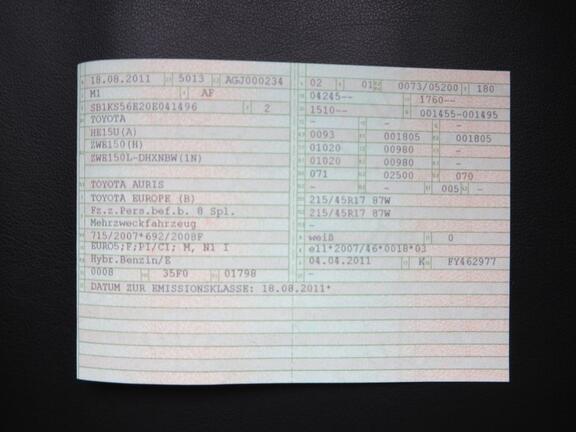 18.08.2011 5013 AGJ000234
M1 AF
SB1KS56E20E041496 2
TOYOTA
HE15U(A)
ZWE150(H)
ZWE150L-DHXNBW(1N)
TOYOTA AURIS
TOYOTA EUROPE (B)
Fz.z.Pers.bef.b. 8 Spl.
Mehrzweckfahrzeug
715/2007*692/2008F
EURO5;F;PI/CI; M, N1 I
Hybr.Benzin/E
0008 35F0 01798
DATUM ZUR EMISSIONSKLASSE: 18.08.2011*
02 01 0073/05200 180
04245-- 1760--
1510-- 001455-001495
- - -
0093 001805 001805
01020 00980 -
01020 00980 -
071 02500 070
- - 005 -
215/45R17 87W
215/45R17 87W
-
weiß 0
e11*2007/46*0018*03
04.04.2011 K FY462977
-